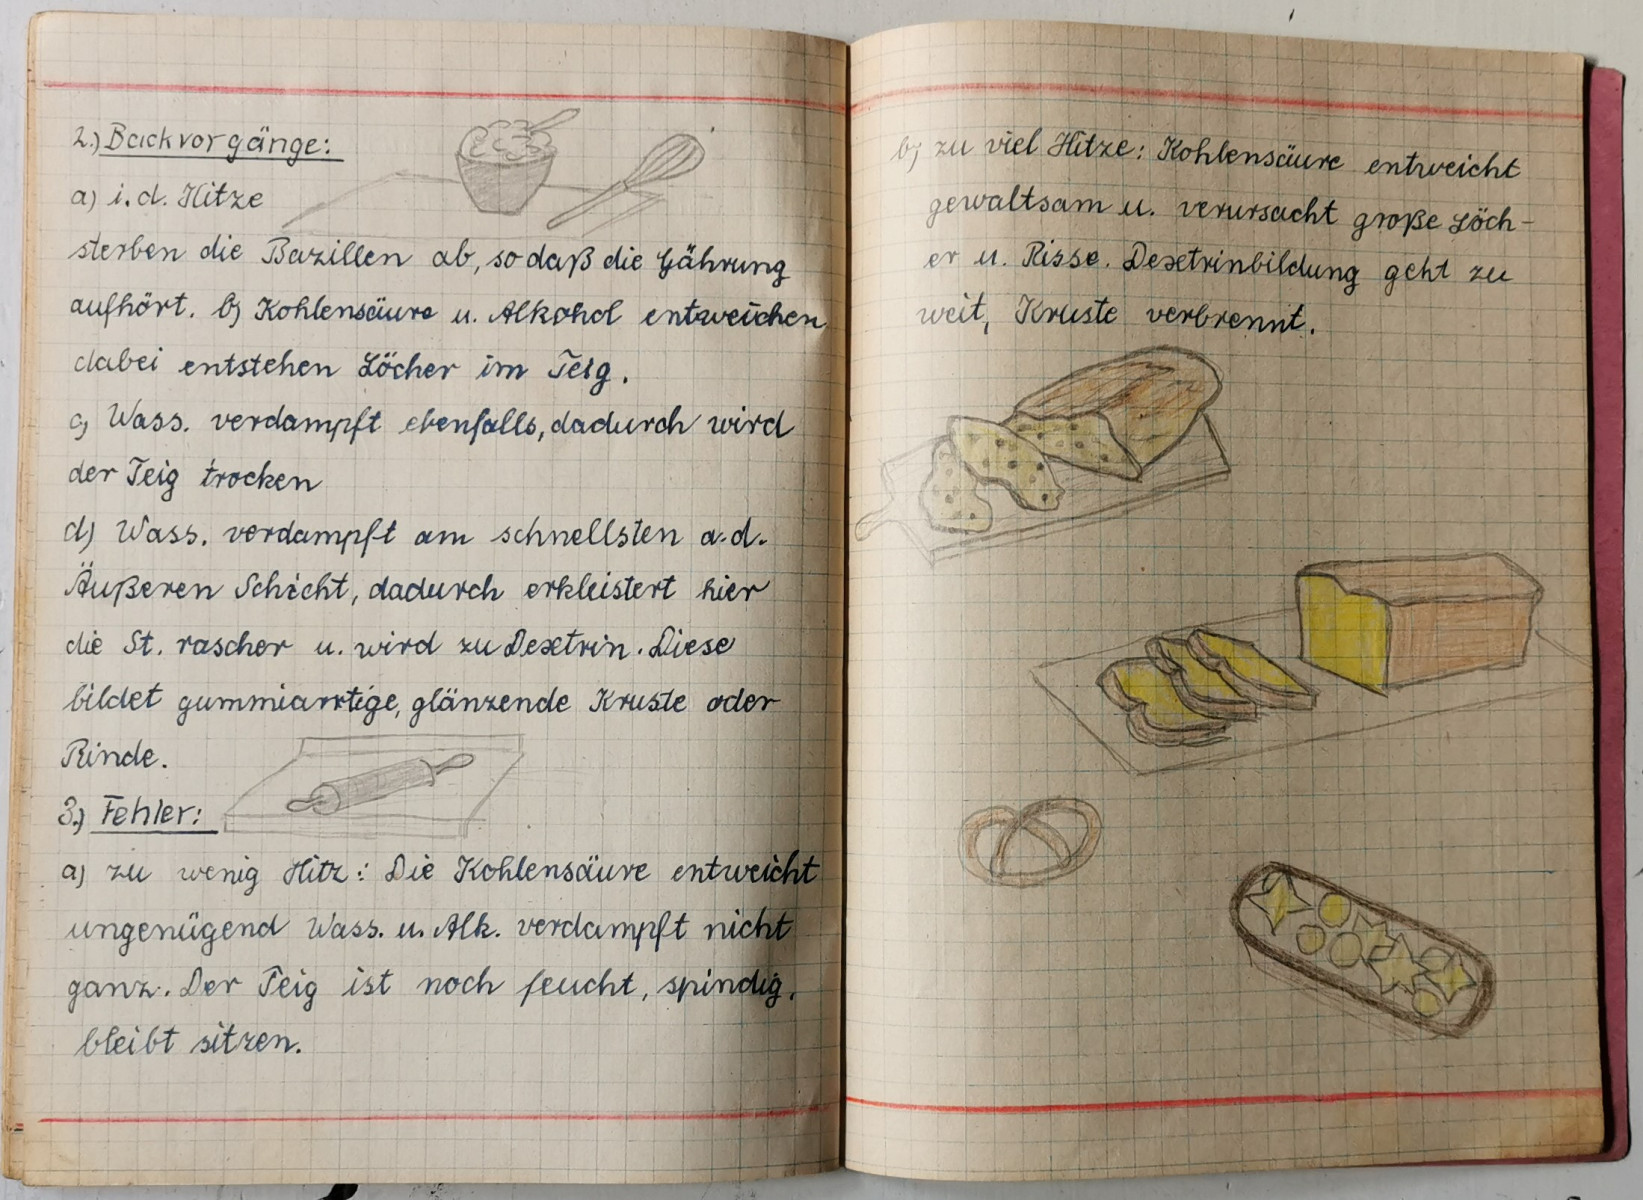 2.) Backvorgänge:
a) i. d. Hitze
sterben die Bazillen ab, so daß die Gährung
aufhört. b) Kohlensäure u. Alkohol entweichen
dabei entstehen Löcher im Teig.
c) Wass. verdampft ebenfalls, dadurch wird
der Teig trocken
d) Wass. verdampft am schnellsten a. d.
Äußeren Schicht, dadurch erkleistert hier
die St. rascher u. wird zu Dextrin. Diese
bildet gummiarrtige, glänzende Kruste oder
Rinde.
3.) Fehler:
a) zu wenig Hitz: Die Kohlensäure entweicht
ungenügend Wass. u. Alk. verdampft nicht
ganz. Der Teig ist noch feucht, spindig,
bleibt sitzen.
b) zu viel Hitze: Kohlensäure entweicht
gewaltsam u. verursacht große Löch-
er u. Risse. Dextrinbildung geht zu
weit, Kruste verbrennt.